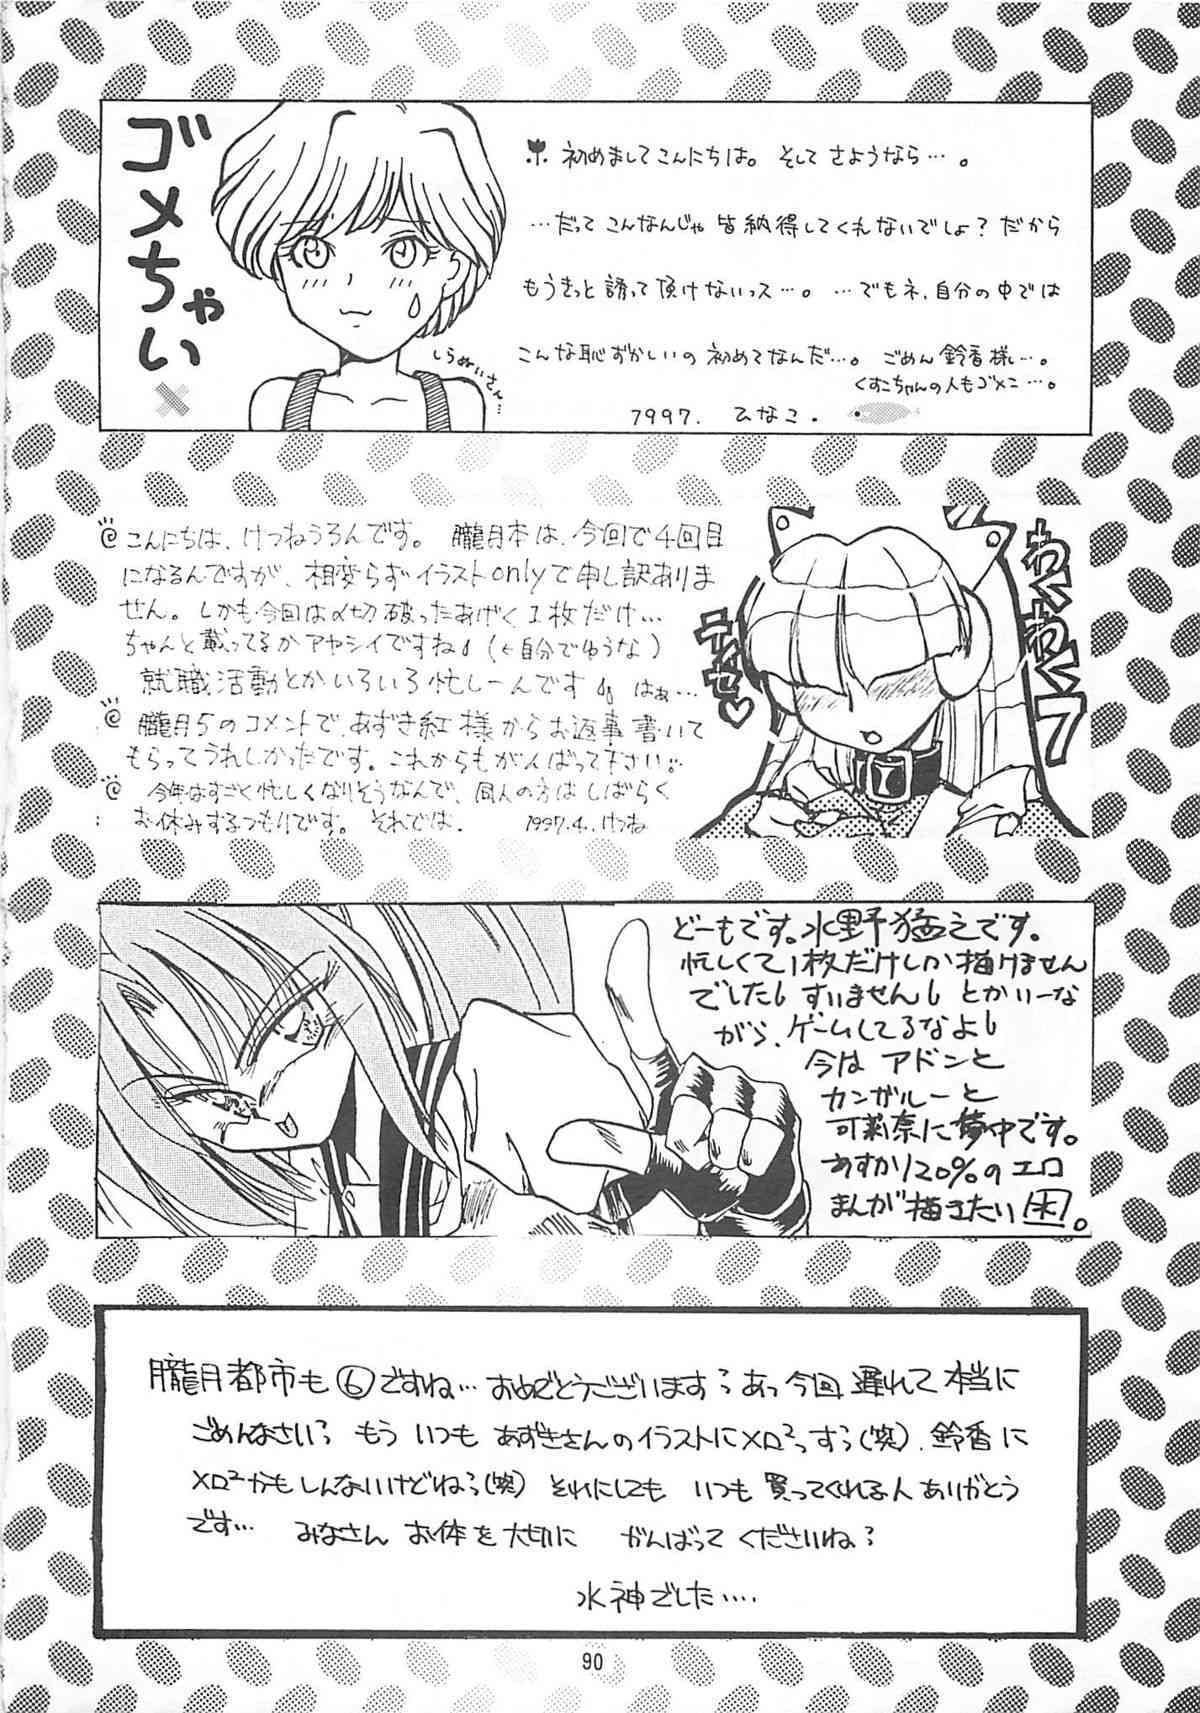 ゴメちゃい
初めましてこんにちは。そして さようなら…。
…だって こんなんじゃ 皆納得してくれないでしょ？だから
もうきっと 誘って頂けないっス…。…でもネ、自分の中では
こんな恥ずかしいの 初めてなんだ…。ごめん 鈴香様…。
くすこちゃんの人もゴメン…。
1997. ひなこ.
しらぬいさん…
こんにちは、けつねうろんです。朧月本は、今回で4回目
になるんですが、相変らずイラストonlyで申し訳ありま
せん。しかも今回は〆切破ったあげく1枚だけ…
ちゃんと載ってるかアヤシイですね (←自分でゆうな)
就職活動とかいろいろ忙しーんです はぁ…
朧月5のコメントで、あずき紅様からお返事書いて
もらってうれしかったです。これからもがんばって下さい。
今年はすごく忙しくなりそうなんで、同人の方はしばらく
お休みするつもりです。それでは. 1997.4.けつね
わくわく7
ティセ♡
どーもです。水野猛之です。
忙しくて1枚だけしか描けません
でした すいません とかいーな
がら、ゲームしてるなよ
今は アドンと
カンガルーと
可莉奈に夢中です。
あすか120%のエロ
まんが描きたい困。
朧月都市も⑥ですね… おめでとうございます? あっ今回 遅れて 本当に
ごめんなさい? もう いつも あずきさんのイラストにメロ²っすっ(笑). 鈴香に
メロ²かもしんないけどねっ(笑) それにしても いつも 買ってくれる人 ありがとう
です… みなさん お体を大切に がんばって くださいね?
水神でした….
90